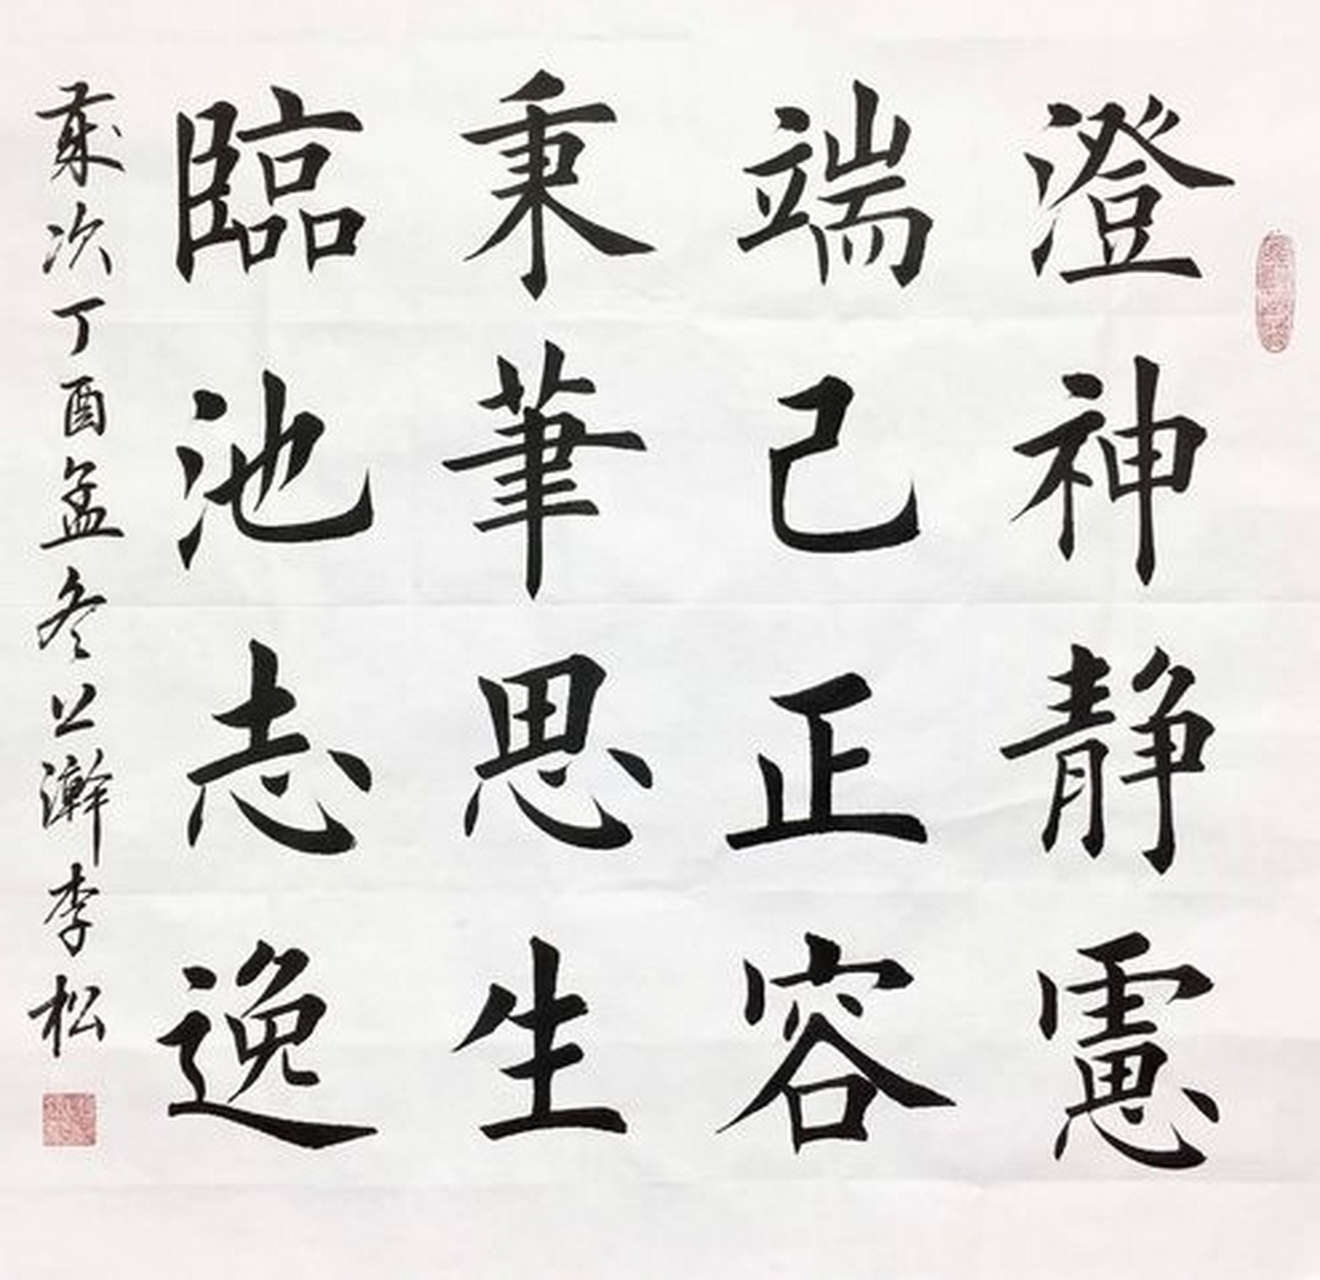 澄神静慮
端己正容
秉筆思生
臨池志逸
歲次丁酉孟冬上澣李松